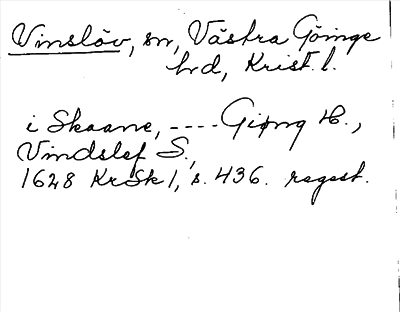 Vinslöv, sn, Västra Göinge
hd, Krist. l.
i Skaane, ---- Giøng H.,
Vindslef S.,
1628 KrSk 1, s. 436. regest.